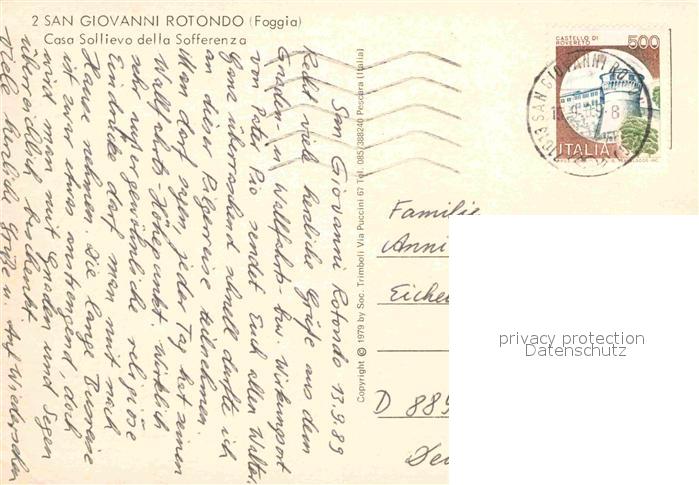 2 SAN GIOVANNI ROTONDO (Foggia)
Casa Sollievo della Sofferenza
CASTELLO DI
ROVERETO
500
ITALIA
SAN GIOVANNI RO
Copyright © 1979 by Soc. Trimboli Via Puccini 67 Tel. 085/388240 Pescara (Italia)
San Giovanni Rotondo 13.9.89
Recht viele herzliche Grüße aus dem
Gnaden- in Wallfahrts- bzw. Wirkungsort
von Pater Pio sendet Euch allen Walter.
Ganz überraschend schnell durfte ich
an dieser Pilgerreise teilnehmen.
Man darf sagen, jeder Tag hat seinen
Wallfahrts-Höhepunkt. Wirklich
sehr außergewöhnliche religiöse
Eindrücke darf man mit nach
Hause nehmen. Die lange Busreise
ist zwar etwas anstrengend, doch
wird man mit Gnaden und Segen
überreichlich belohnt.
Viele herzliche Grüße u. Auf Wiedersehen
Familie
Anni
Eichen
D 889
Deu
privacy protection
Datenschutz